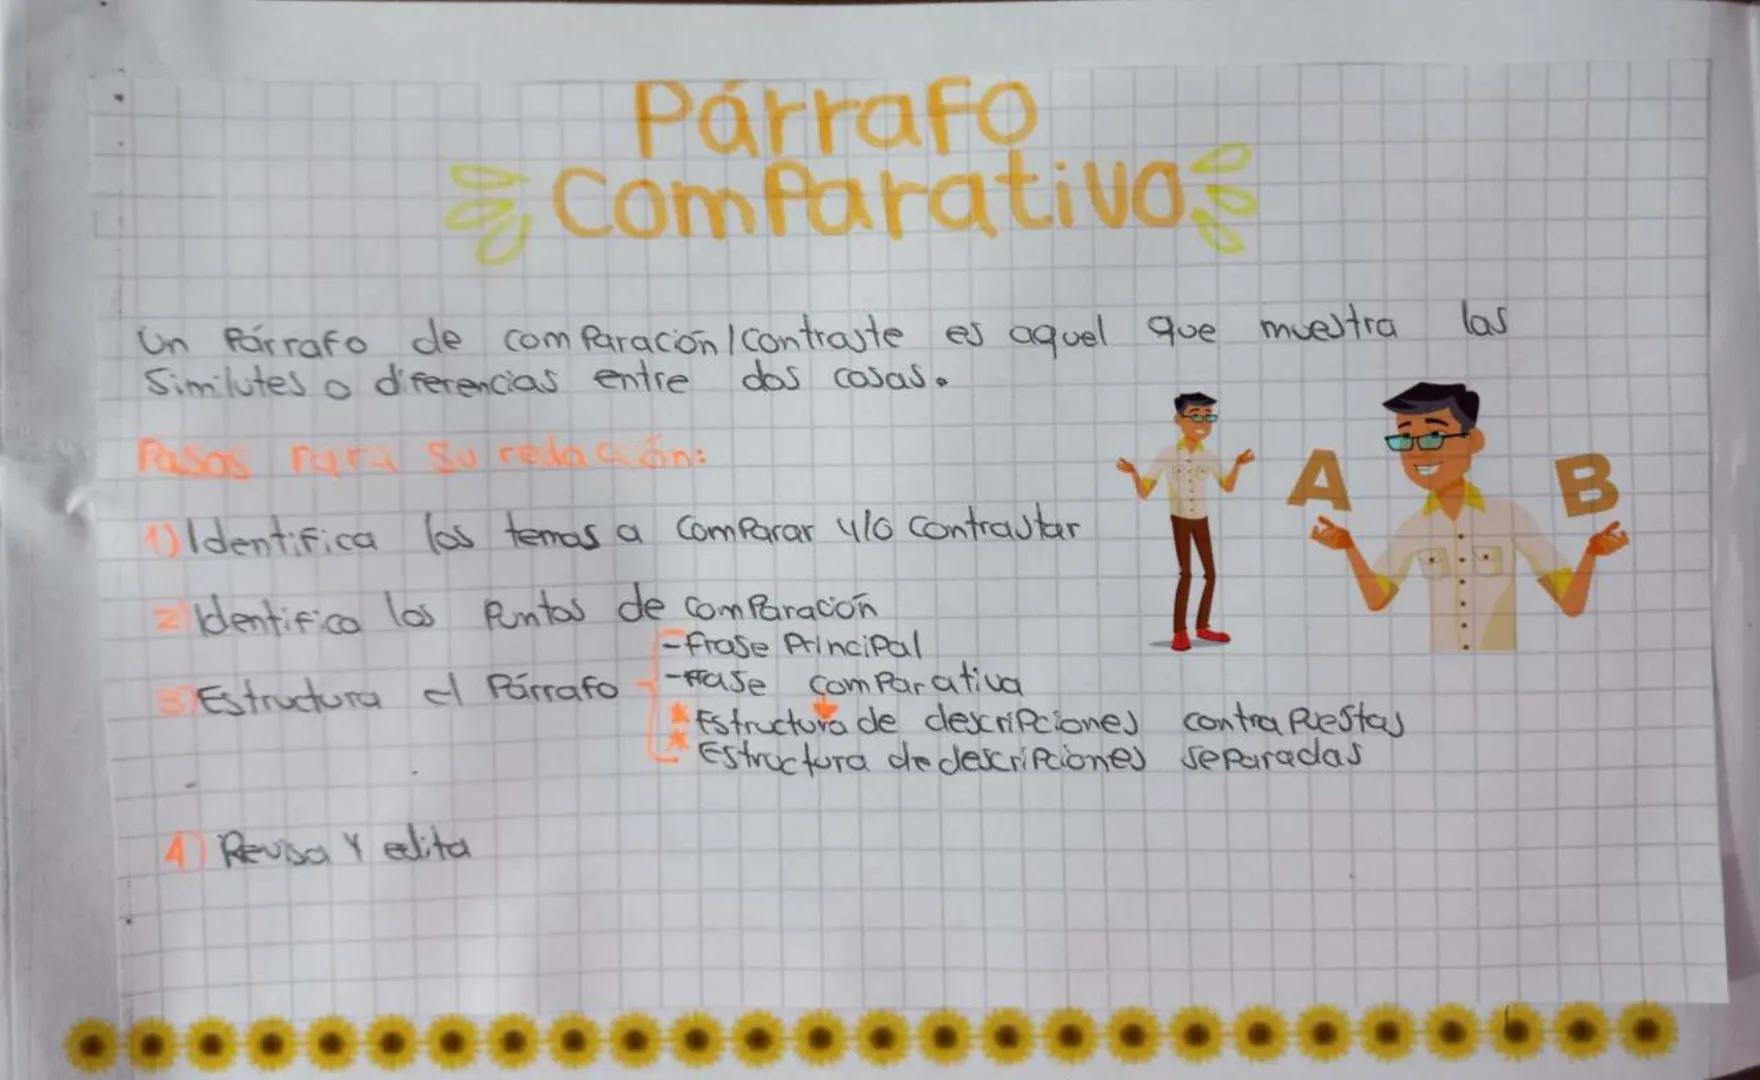 Párrafo
Comparativo
Un Párrafo de comparación/contraste es aquel que muestra las
Similutes o diferencias entre dos cosas.
Pasos para su redacción:
1) Identifica los temas a comparar y/o contrastar
2) Identifica los puntos de comparación
-frase Principal
3) Estructura el Párrafo -frase comparativa
* Estructura de descripciones contrapuestas
* Estructura de descripciones separadas
4) Revisa y edita
A B